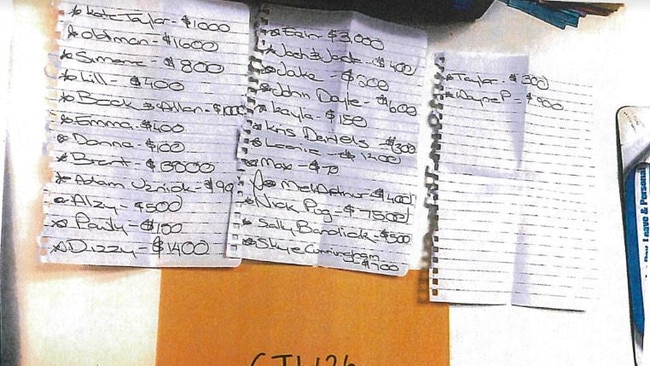 * Kate Taylor - $1000
* oldman - $1600
* Simone - $800
* Lill - $400
* Book & Allan - $1000
* Emma - $400
* Donna - $100
* Brent - $6000
* Adam Uznick - $90
* Alzy - $500
* Pauly - $100
* Dizzy - $1400
* Bain - $3,000
* Josh & Jade - $400
* Jake - $200
* John Doyle - $600
* Kayla - $150
* Kris Daniels - $300
* Leonie - $1200
* Max - $70
* Mel Arthur - $400
* Nick Pug - $7500
* Sally Bandick - $500
* Skye Cunningham
- $700
* Taylor - $300
* Wayne P - $900
Leave & Personal